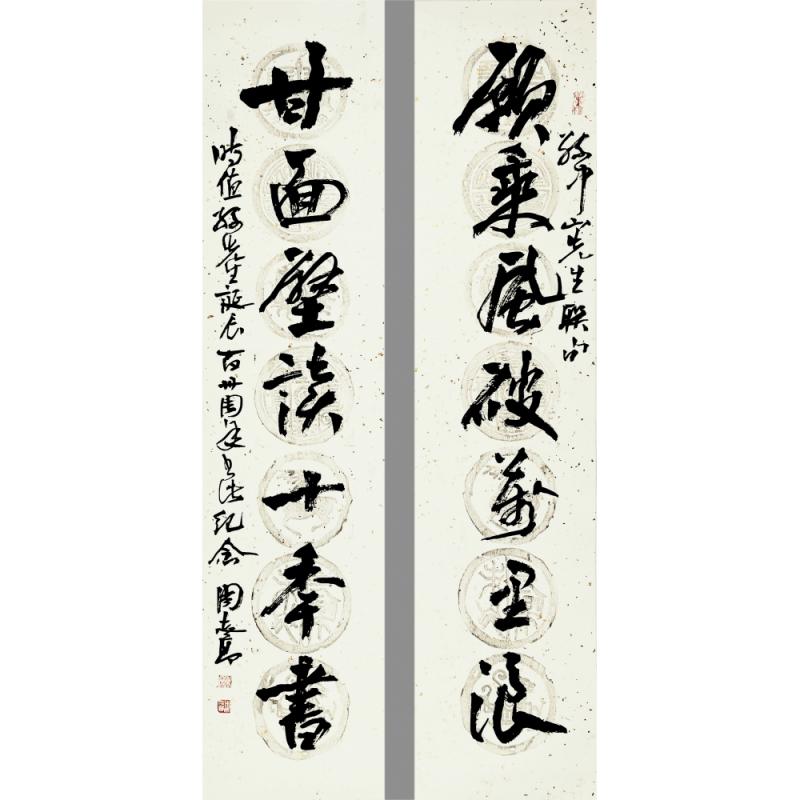 孫中山先生联句
願乘風破萬里浪
甘面壁讀十秊書
時值孫先生誕辰百卅周年书法紀念 陶